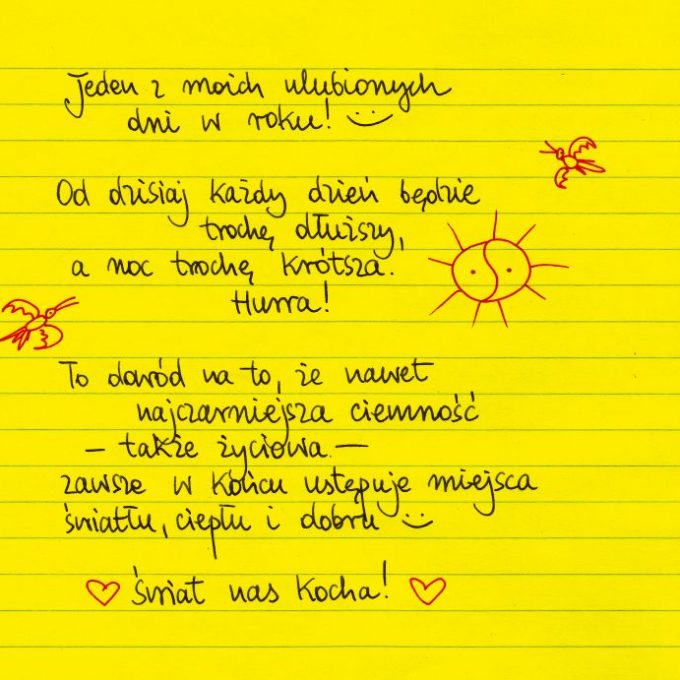 Jeden z moich ulubionych
dni w roku! :)
Od dzisiaj każdy dzień będzie
trochę dłuższy,
a noc trochę krótsza.
Hurra!
To dowód na to, że nawet
najczarniejsza ciemność
– także życiowa –
zawsze w końcu ustępuje miejsca
światłu, ciepłu i dobru :)
♡ świat nas kocha! ♡